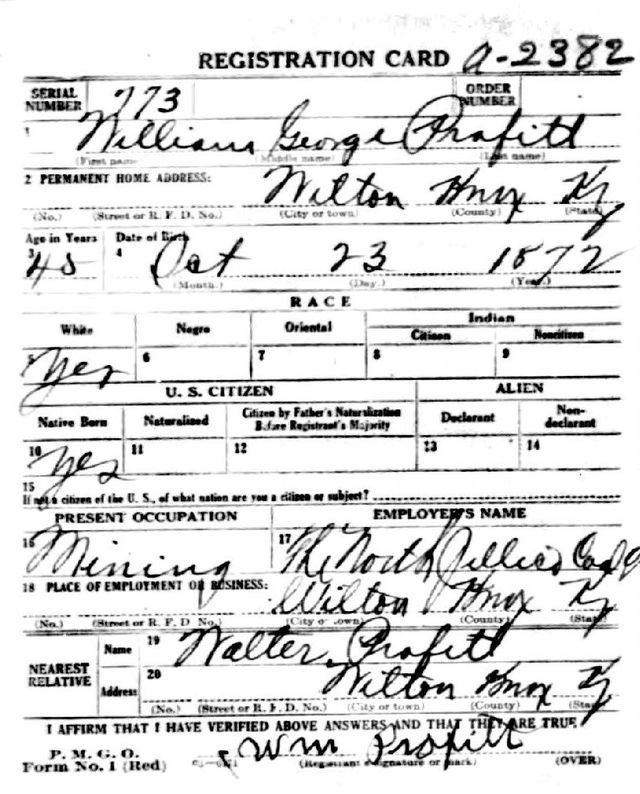 REGISTRATION CARD A-2382
SERIAL NUMBER 773 ORDER NUMBER
1 William George Profitt
(First name) (Middle name) (Last name)
2 PERMANENT HOME ADDRESS: Wilton Knox Ky
(No.) (Street or R. F. D. No.) (City or town) (County) (State)
Age in Years Date of Birth
3 45 4 Oct 23 1872
(Month.) (Day.) (Year.)
RACE
White Negro Oriental Indian
Citizen Noncitizen
Yes 6 7 8 9
U. S. CITIZEN ALIEN
Native Born Naturalized Citizen by Father's Naturalization Before Registrant's Majority Declarant Non-declarant
10 Yes 11 12 13 14
15
If not a citizen of the U. S., of what nation are you a citizen or subject?
PRESENT OCCUPATION EMPLOYER'S NAME
16 Mining 17 The North Jellico Coal
18 PLACE OF EMPLOYMENT OR BUSINESS: Wilton Knox Ky
(No.) (Street or R. F. D No.) (City or town) (County) (State)
NEAREST RELATIVE Name 19 Walter Profitt
Address 20 Wilton Knox Ky
(No.) (Street or R. F. D. No.) (City or town) (County) (State)
I AFFIRM THAT I HAVE VERIFIED ABOVE ANSWERS AND THAT THEY ARE TRUE
P. M. G. O. Wm Profitt
Form No. 1 (Red) (Registrant's signature or mark) (OVER)